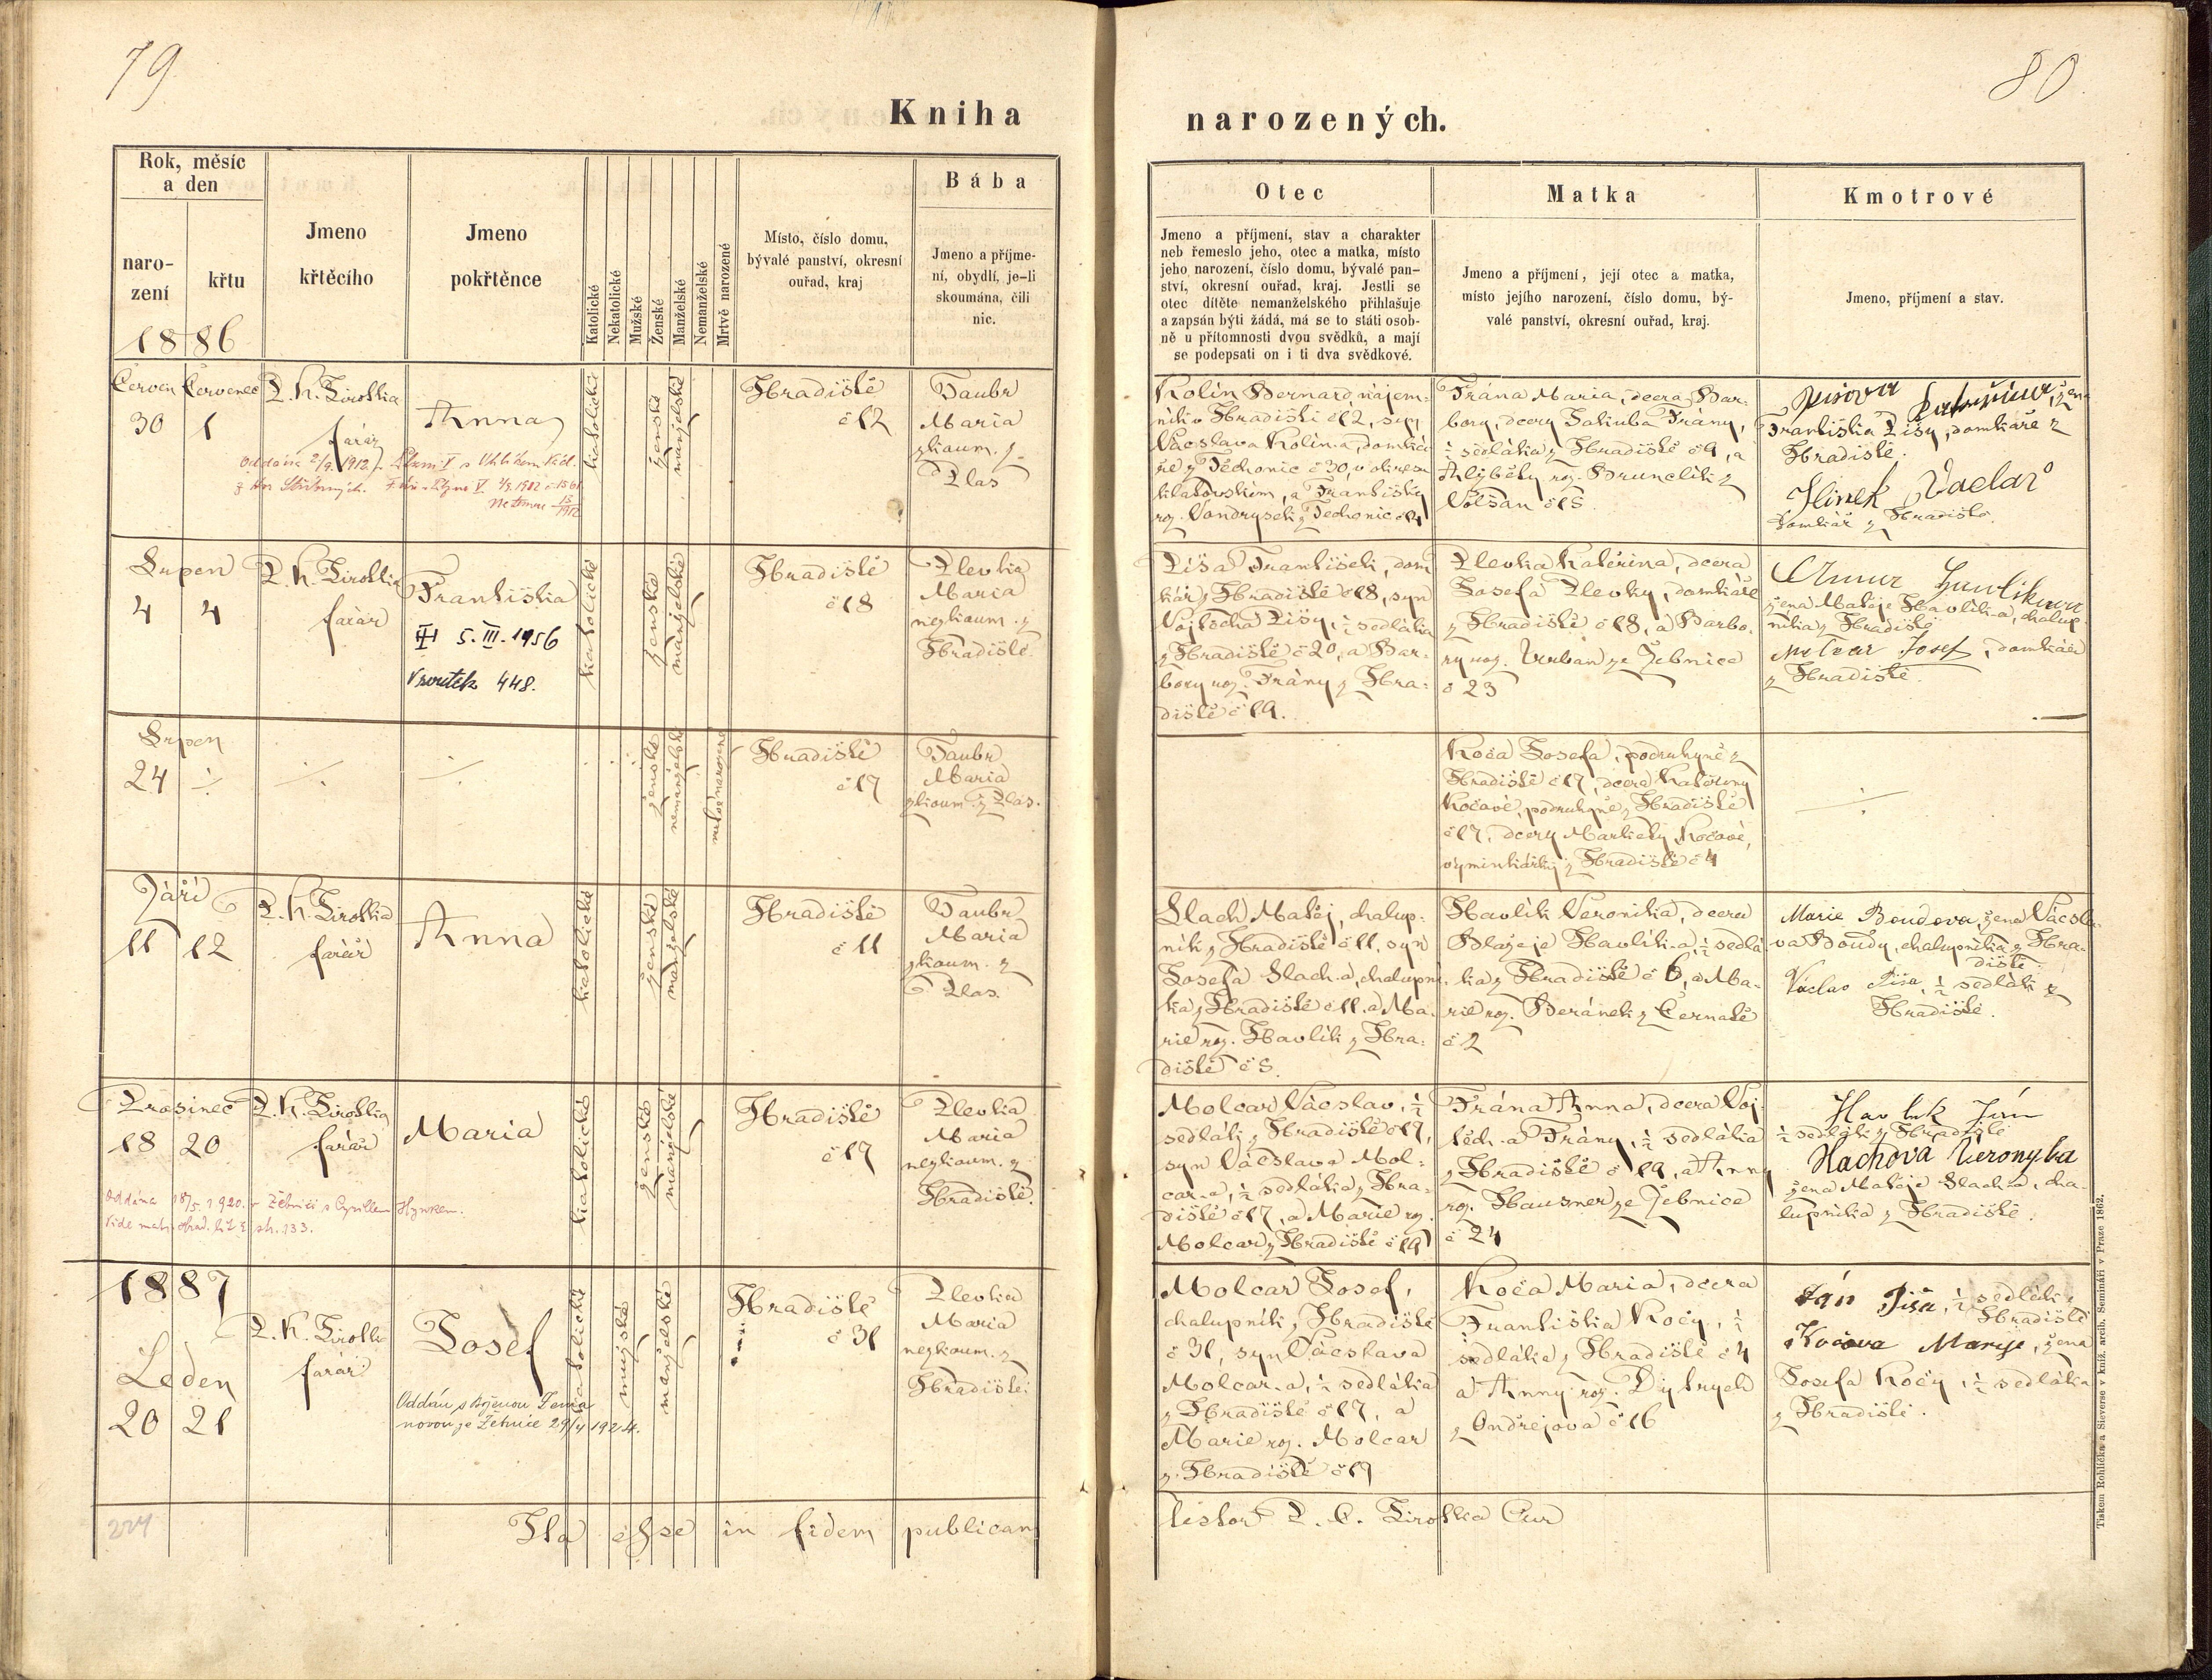 79
80
Kniha
narozených.
Rok, měsíc
a den
naro-
zení
křtu
1886
Jmeno
křtěcího
Jmeno
pokřtěnce
Katolické
Nekatolické
Mužské
Ženské
Manželské
Nemanželské
Mrtvě narozené
Místo, číslo domu,
bývalé panství, okresní
ouřad, kraj
Bába
Jmeno a příjme-
ní, obydlí, je-li
skoumána, čili
nic.
Otec
Jmeno a příjmení, stav a charakter
neb řemeslo jeho, otec a matka, místo
jeho narození, číslo domu, bývalé pan-
ství, okresní ouřad, kraj. Jestli se
otec dítěte nemanželského přihlašuje
a zapsán býti žádá, má se to státi osob-
ně u přítomnosti dvou svědků, a mají
se podepsati on i ti dva svědkové.
Matka
Jmeno a příjmení, její otec a matka,
místo jejího narození, číslo domu, bý-
valé panství, okresní ouřad, kraj.
Kmotrové
Jmeno, příjmení a stav.
Červen Červenec
30 1
P. K.
farář
Anna
katolické
ženské
manželské
Hradiště
č 12
Taubr
Maria
zkoum. z
Plas
Kolín Bernard, nájem-
ník v Hradišti č 12, syn
Václava Kolína, domká-
ře z Těchonic č 30, v okresu
klatovském, a Františky
roz. Vondrysek z Těchonic č 14
Trána Maria, dcera Bar-
bory, dcery Jakuba Trány,
½ sedláka z Hradiště č 9, a
Alžběty roz. Brunclík z
Volšan č 15
Pišova Kateřina, žena
Františka Pišy, domkáře z
Hradiště.
Hlinek Vaclav
domkář z Hradiště.
Srpen
4 4
P. K.
farář
Františka
5. III. 1956
Vroutek 448.
katolické
ženské
manželské
Hradiště
č 18
Plevka
Maria
nezkoum. z
Hradiště.
Piša František, dom-
kář z Hradiště č 18, syn
Vojtěcha Pišy, ½ sedláka
z Hradiště č 20, a Bar-
bory roz. Trány z Hra-
diště č 19.
Plevka Kateřina, dcera
Josefa Plevky, domkáře
z Hradiště č 18, a Barbo-
ry roz. Urban ze Žebnice
č 23
Anna Havlikova
žena Matěje Havlíka, chalup-
níka z Hradiště
Molcar Josef, domkář
z Hradiště.
Srpen
24 ÷
÷
÷
ženské
nemanželské
mrtvě narozené
Hradiště
č 17
Taubr
Maria
zkoum. z Plas.
Koča Josefa, podruhyně z
Hradiště č 17, dcera Kateřiny
Kočové, podruhyně z Hradiště
č 17, dcery Markéty Kočové,
výminkářky z Hradiště č 4
÷
Září
11 12
P. K.
farář
Anna
katolické
ženské
manželské
Hradiště
č 11
Taubr
Maria
zkoum. z
Plas.
Slach Matěj, chalup-
ník z Hradiště č 11, syn
Josefa Slach-a, chalupní-
ka z Hradiště č 11, a Ma-
rie roz. Havlík z Hra-
diště č 5.
Havlík Veronika, dcera
Blažeje Havlík-a, ½ sedlá-
ka z Hradiště č 6, a Ma-
rie roz. Beránek z Černatě
č 2
Marie Boudova, žena Václa-
va Boudy, chalupníka z Hra-
diště.
Václav Piša, ½ sedlák z
Hradiště.
Prasinec
18 20
P. K.
farář
Maria
Oddána 18/5. 1920. v Žebnici s Cyrillem Hynkem.
str. 133.
katolické
ženské
manželské
Hradiště
č 17
Plevka
Maria
nezkoum. z
Hradiště.
Molcar Václav, ½
sedlák z Hradiště č 17,
syn Václava Mol-
car-a, ½ sedláka z Hra-
diště č 17, a Marie roz.
Molcar z Hradiště č 19
Trána Anna, dcera Voj-
těch-a Trány, ½ sedláka
z Hradiště č 19, a Anny
roz. Hausner ze Žebnice
č 24
Havlik Ján
½ sedlák z Hradiště
Slachova Veronyka
žena Matěje Slach-a, cha-
lupníka z Hradiště.
1887
Leden
20 21
P. K.
farář
Josef
katolické
mužské
manželské
Hradiště
č 31
Plevka
Maria
nezkoum. z
Hradiště.
Molcar Josef,
chalupník z Hradiště
č 31, syn Václava
Molcar-a, ½ sedláka
z Hradiště č 17, a
Marie roz. Molcar
z Hradiště č 19
Koča Maria, dcera
Františka Koči, ½
sedláka z Hradiště č 4
a Anny roz. Dytrych
z Ondřejova č 16
Ján Piša, ½ sedlák z
Hradiště
Kočova Maryje, žena
Josefa Koči, ½ sedláka
z Hradiště.
Ita esse in fidem publicam
testor P. C. Cur
Tiskem Rohlíčka a Sieverse v kníž. arcib. Semináři v Praze 1862.